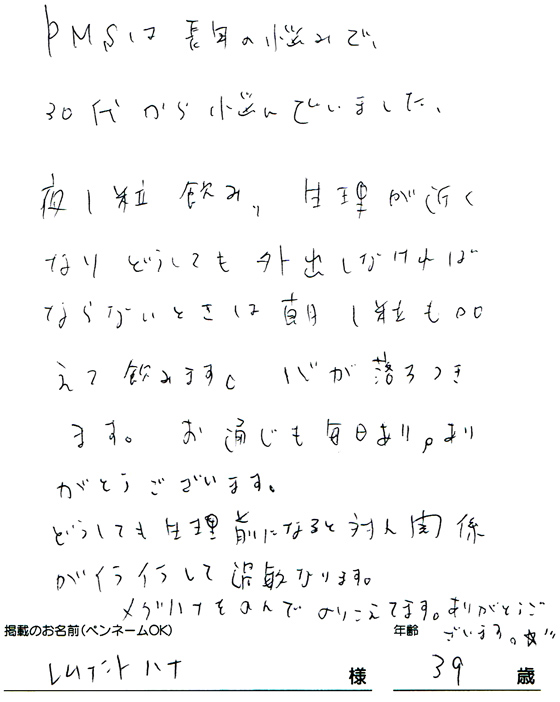 PMSは長年の悩みで、
30代から悩んでいました、
夜1粒飲み、生理が近く
なりどうしても外出しなければ
ならないときは朝1粒も加
えて飲みます。心が落ちつき
ます。お通じも毎日あり、あり
がとうございます。
どうしても生理前になると対人関係
がイライラして過敏なります。
メグハナをのんでのりこえてます。ありがとうご
ざいます。☆
掲載のお名前(ペンネームOK)
ハナ 様
年齢
39 歳